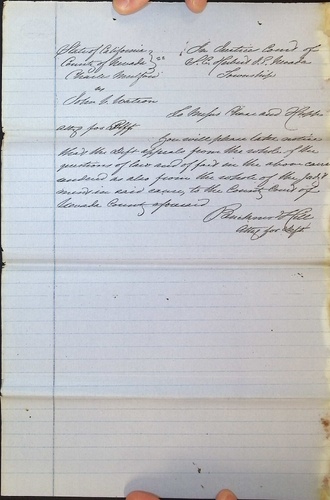 State of California } ss
County of Nevada
In Justice Court of
Nevada
Township
Charles
vs
John C. Watson
To Messrs Chase and
attys for Plff
You will please take notice
that the Deft appeals from the whole of the
questions of law and of fact in the above cause
as also from the whole of the Judg
ment in said cause, to the County Court of
Nevada County aforesaid
& Hill
Atty for Deft